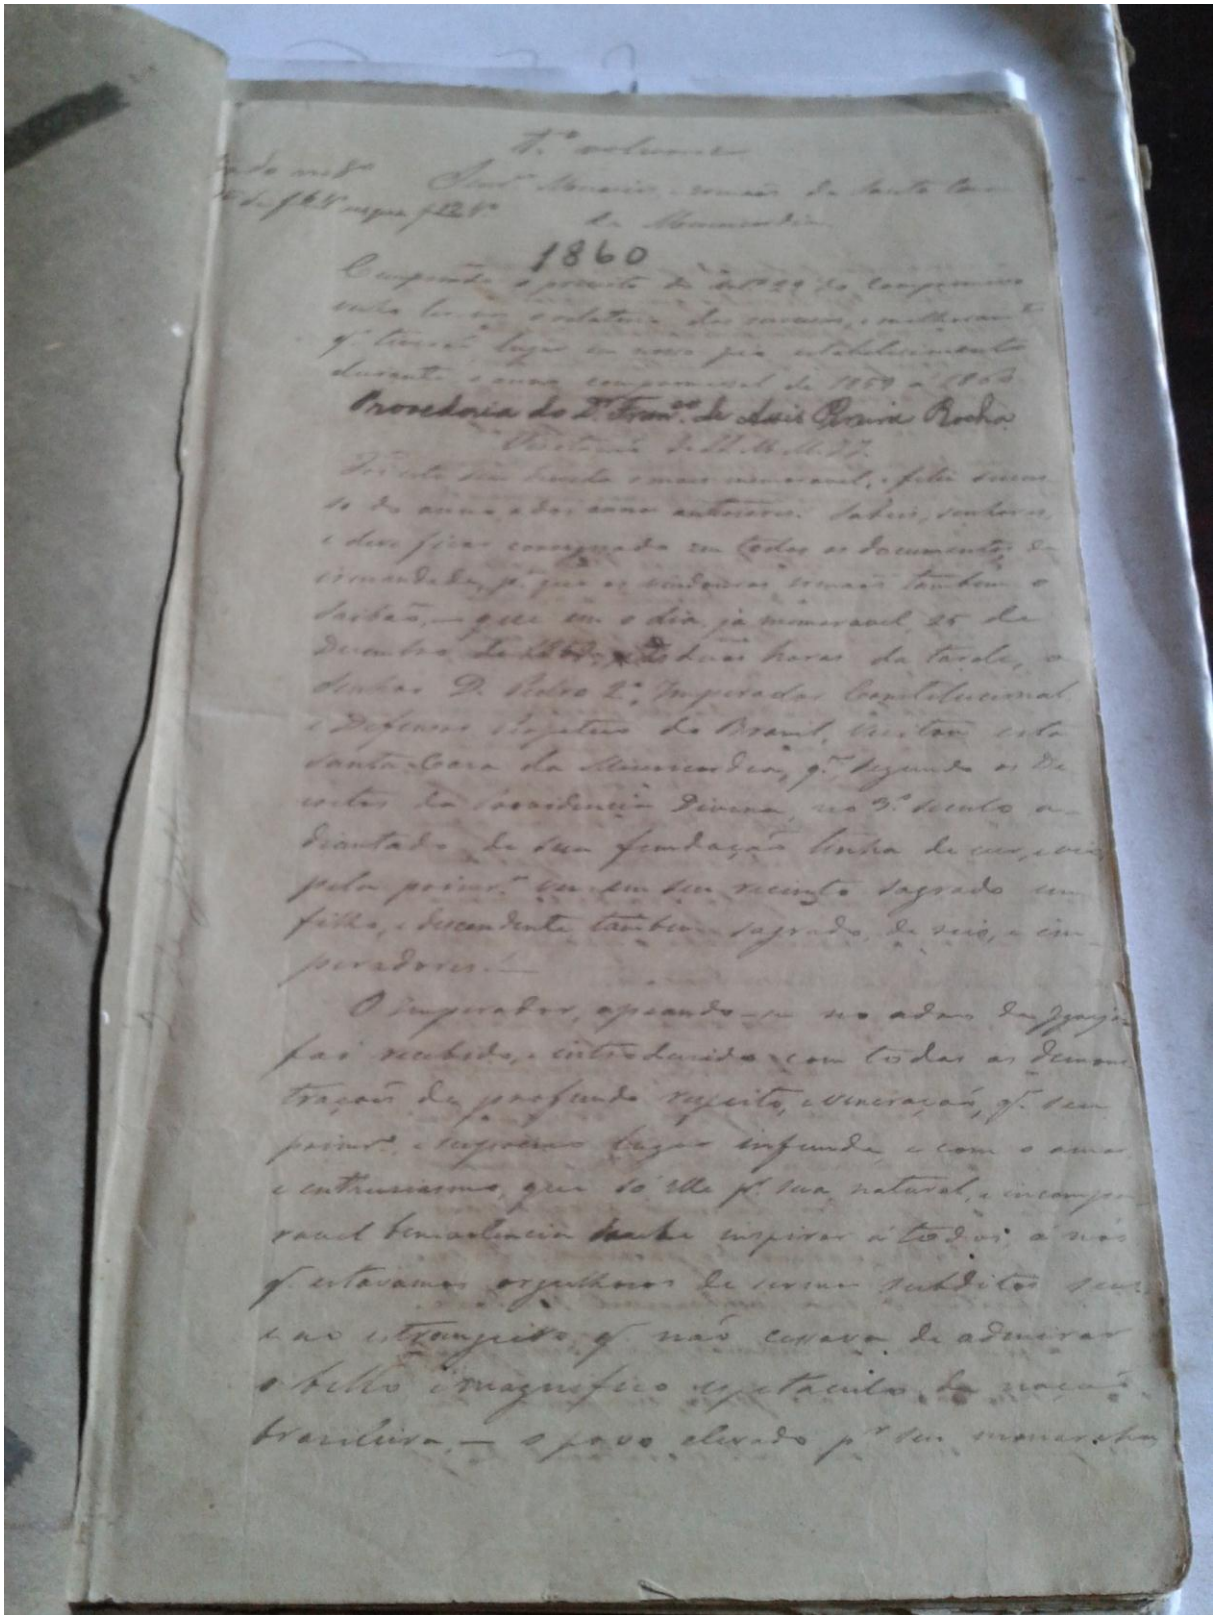 1.º volume
Senr.es Mesarios, e irmaõs da Santa Casa
da Misericordia
1860
Cumprindo o preceito do art.º 29 do Compromisso
venho ler-vos o relatorio dos successos, e melhoram.tos
q. tiveraõ lugar em nosso pio estabelecimento
durante o anno compromissal de 1859 a 1860.
Provedoria do Dr. Fran.co de Assis Pereira Rocha
de SS. M.M. I.I.
Foi este sem duvida o mais memoravel, e feliz succes-
so do anno, e dos annos anteriores. Sabeis, senhores,
e deve ficar consignado em todos os documentos da
irmandade, p.ª que os vindouros irmaõs tambem o
saibaõ, — que em o dia, já memoravel, 25 de
Desembro de as duas horas da tarde, o
Senhor D. Pedro 2.º, Imperador Constitucional
e Defensor Perpetuo do Brasil, visitou esta
Santa Casa da Misericordia, q., segundo os De-
cretos da Providencia Divina, no 3.º seculo a-
diantado de sua fundaçaõ tinha de ver, e vio
pela primr.ª vez em seu recinto sagrado um
filho, e descendente tambem sagrado, de reis, e im-
peradores! —
O imperador, apeando-se no adro da Igreja
foi recebido, e introdusido com todas as demons-
traçoẽs de profundo respeito, e veneraçaõ, q. seu
primr.º e supremo lugar infunde, e com o amor
e enthusiasmo, que só elle p.r sua natural, e incompa-
ravel benevolencia sabe inspirar á todos: á nós
q. estavamos orgulhosos de sermos subditos seus
e ao estrangeiro, q. não cessava de admirar
o bello e magnifico espetaculo da naçaõ
brasileira, — o povo elevado p.r seu monarcha